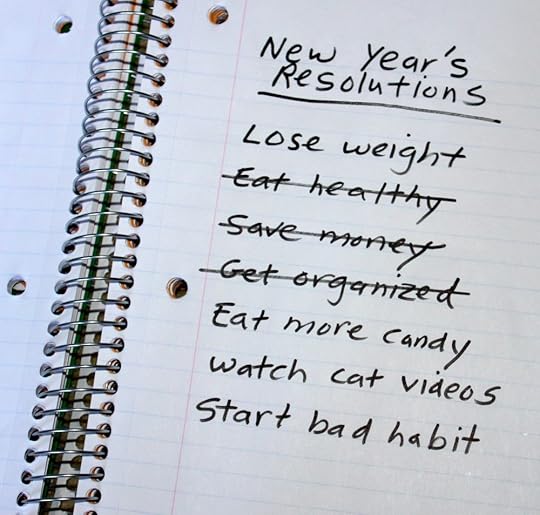 New Year's
Resolutions
Lose weight
Eat healthy
Save money
Get organized
Eat more candy
watch cat videos
Start bad habit